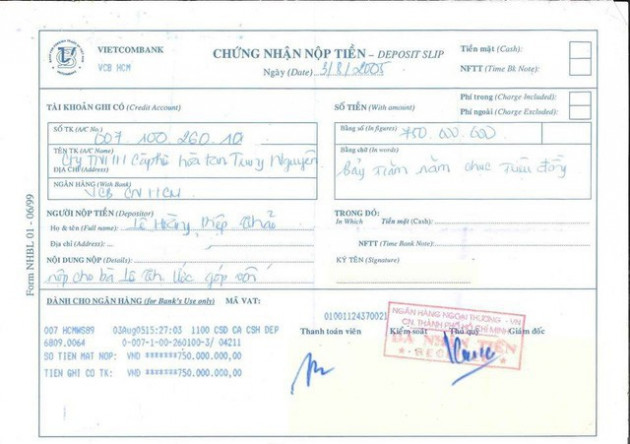 VIETCOMBANK
VCB HCM
CHỨNG NHẬN NỘP TIỀN – DEPOSIT SLIP
Ngày (Date) 3/8/2005
Tiền mặt (Cash):
NFTT (Time Bk Note):
TÀI KHOẢN GHI CÓ (Credit Account)
SỐ TIỀN (With amount)
Phí trong (Charge Included):
Phí ngoài (Charge Excluded):
SỐ TK (A/C No.)
007 100 260.10
Bằng số (In figures)
750.000.000
TÊN TK (A/C Name)
Cty TNHH Càphê hòa tan Trung Nguyên
ĐỊA CHỈ (Address)
Bằng chữ (In words)
bảy trăm năm chục triệu đồng
NGÂN HÀNG (With Bank)
VCB CN HCM
NGƯỜI NỘP TIỀN (Depositor)
Họ & tên (Full name): Lê Hoàng Diệp Thảo
Địa chỉ (Address):
TRONG ĐÓ:
In Which
Tiền mặt (Cash):
NFTT (Time Bank Note):
NỘI DUNG NỘP (Details):
nộp cho bà Lê góp vốn
KÝ TÊN (Signature)
Form NHBL 01 - 06/99
DÀNH CHO NGÂN HÀNG (for Bank's Use only) MÃ VAT:
01001124370021
007 HCMWS89 03Aug0515:27:03 1100 CSD CA CSH DEP
6809.0064 0-007-1-00-26-260100-3/ 04211
SO TIEN MAT NOP: VND *******750.000.000,00
TIEN GHI CO TK: VND *******750.000.000,00
Thanh toán viên Kiểm soát Thủ quỹ Giám đốc
NGÂN HÀNG NGOẠI THƯƠNG - VN
CN. THÀNH PHỐ HỒ CHÍ MINH
ĐÃ NHẬN TIỀN